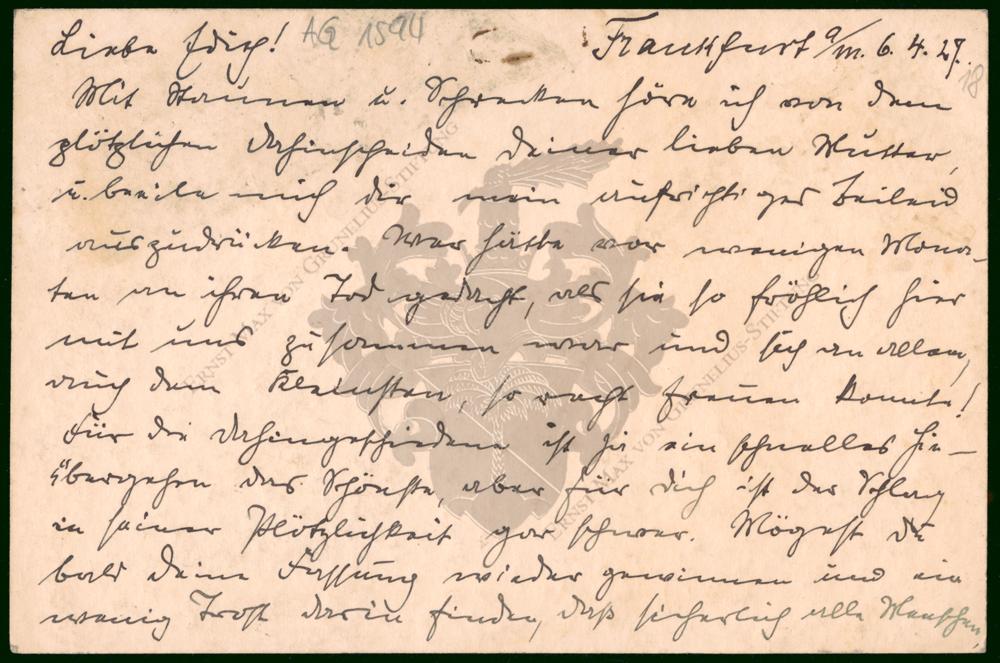 Liebe Edith! AG 1594 Frankfurt a/m. 6. 4. 27.
18
Mit Staunen u. Schrecken höre ich von dem
plötzlichen Dahinscheiden Deiner lieben Mutter,
u. beeile mich dir mein aufrichtiges Beileid
auszudrücken. Wer hätte vor wenigen Mona-
ten an ihren Tod gedacht, als sie so fröhlich hier
mit uns zusammen war und sich an allem,
auch dem Kleinsten, so recht freuen konnte!
Für die Dahingeschiedene ist ja ein schnelles Hin-
übergehen das Schönste, aber für Dich ist der Schlag
in seiner Plötzlichkeit gar schwer. Mögest Du
bald Deine Fassung wieder gewinnen und ein
wenig Trost darin finden, daß sicherlich alle Menschen,
ERNST MAX VON GRUNELIUS-STIFTUNG
ERNST MAX VON GRUNELIUS-STIFTUNG